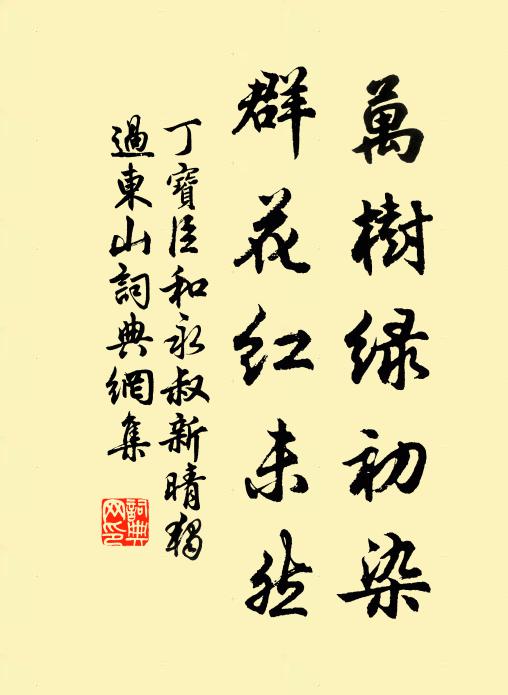 萬樹绿初染
群花红未然
丁寶臣和永叔新晴獨
過東山詞典網集
詞典
网印